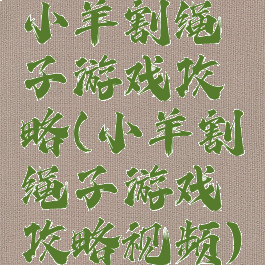 小羊割绳
子游戏攻
略(小羊割
绳子游戏
攻略视频)